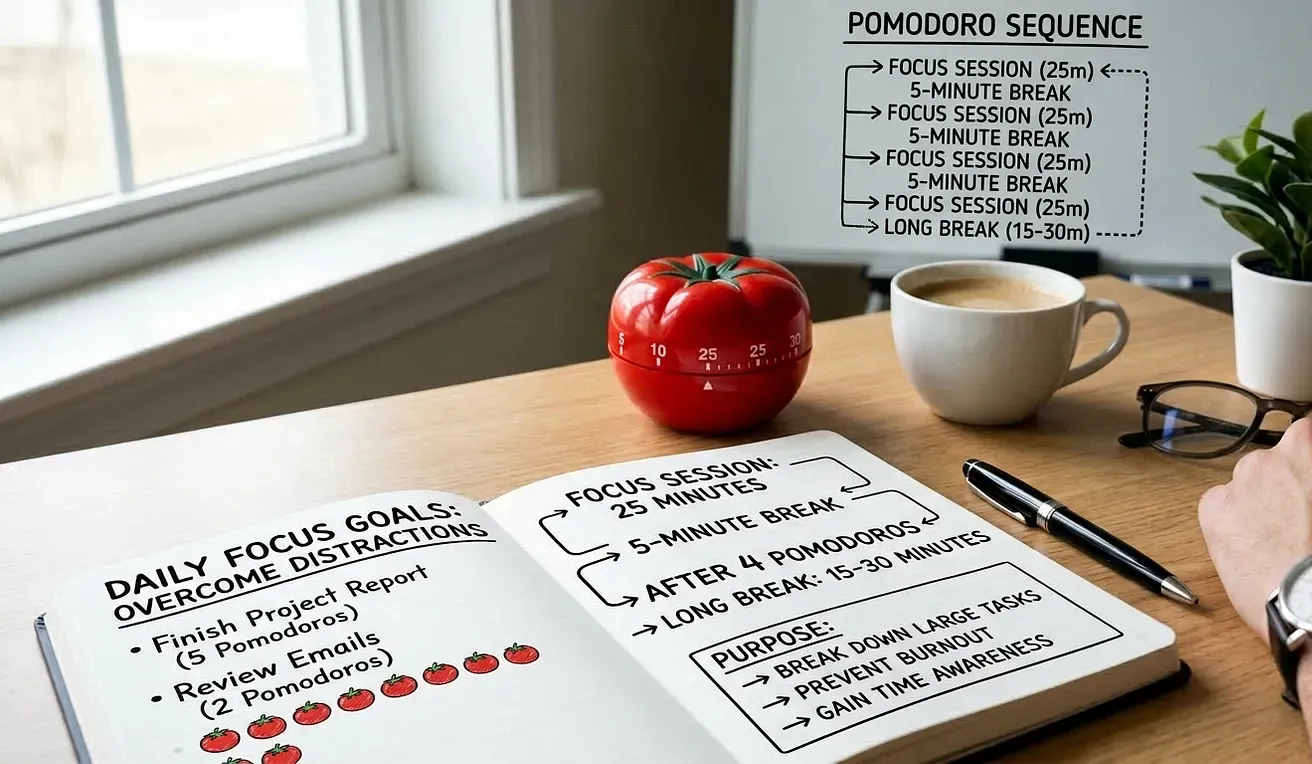 POMODORO SEQUENCE
FOCUS SESSION (25m)
5-MINUTE BREAK
FOCUS SESSION (25m)
5-MINUTE BREAK
FOCUS SESSION (25m)
5-MINUTE BREAK
FOCUS SESSION (25m)
LONG BREAK (15-30m)
5 10 25 25 30
DAILY FOCUS GOALS:
OVERCOME DISTRACTIONS
• Finish Project Report
(5 Pomodoros)
• Review Emails
(2 Pomodoros)
FOCUS SESSION:
25 MINUTES
5-MINUTE BREAK
AFTER 4 POMODOROS
LONG BREAK: 15-30 MINUTES
PURPOSE:
BREAK DOWN LARGE TASKS
PREVENT BURNOUT
GAIN TIME AWARENESS